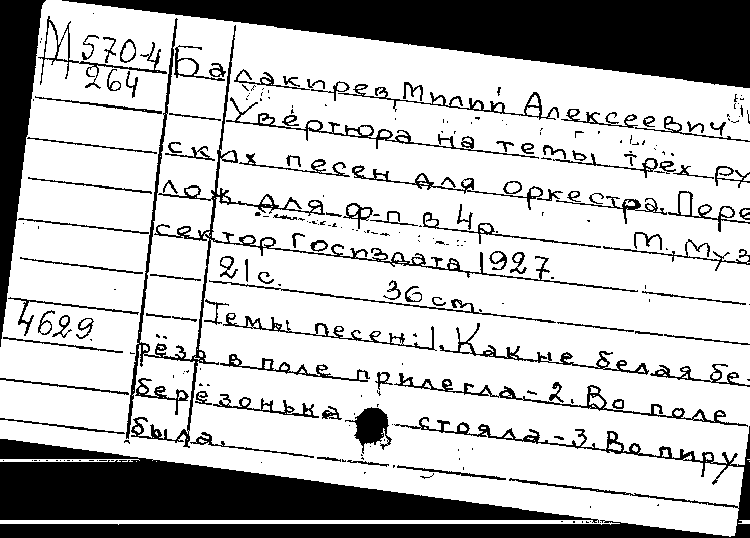 М 570-4
264
Балакирев, Милий Алексеевич.
Увертюра на темы трёх ру
ских песен для оркестра. Пере
лож. для ф-п в 4 р. М., Муз
сектор Госиздата, 1927.
21 с. 36 cm.
4629
Темы песен: 1. Как не белая бе-
рёза в поле прилегла.-2. Во поле
берёзонька стояла.-3. Во пиру
была.